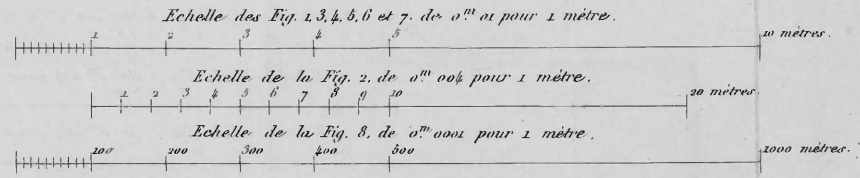 Echelle des Fig. 1, 3, 4, 5, 6 et 7. de 0.m 01 pour 1 mètre.
1 2 3 4 5 10 mètres.
Echelle de la Fig. 2, de 0.m 004 pour 1 mètre.
1 2 3 4 5 6 7 8 9 10 20 mètres.
Echelle de la Fig. 8, de 0.m 0001 pour 1 mètre.
100 200 300 400 500 1000 mètres.